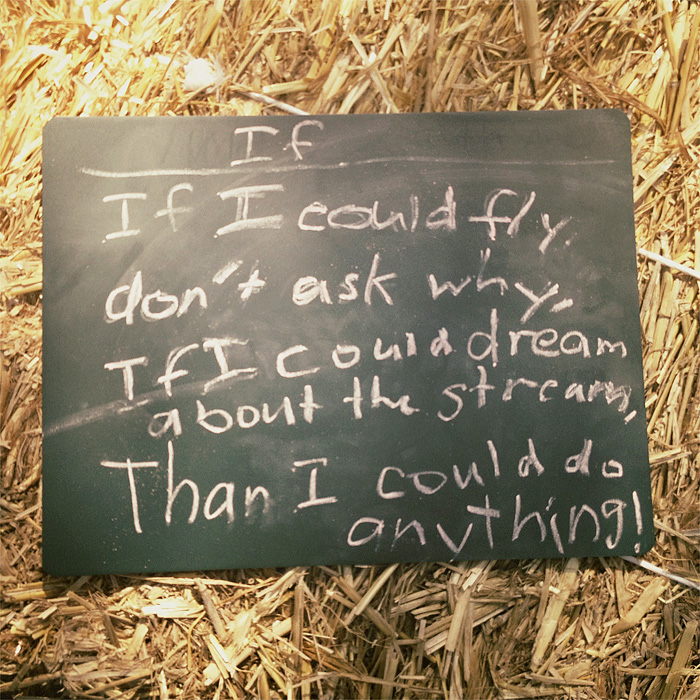 If
If I could fly,
don't ask why,
If I could dream
about the stream,
Than I could do
anything!